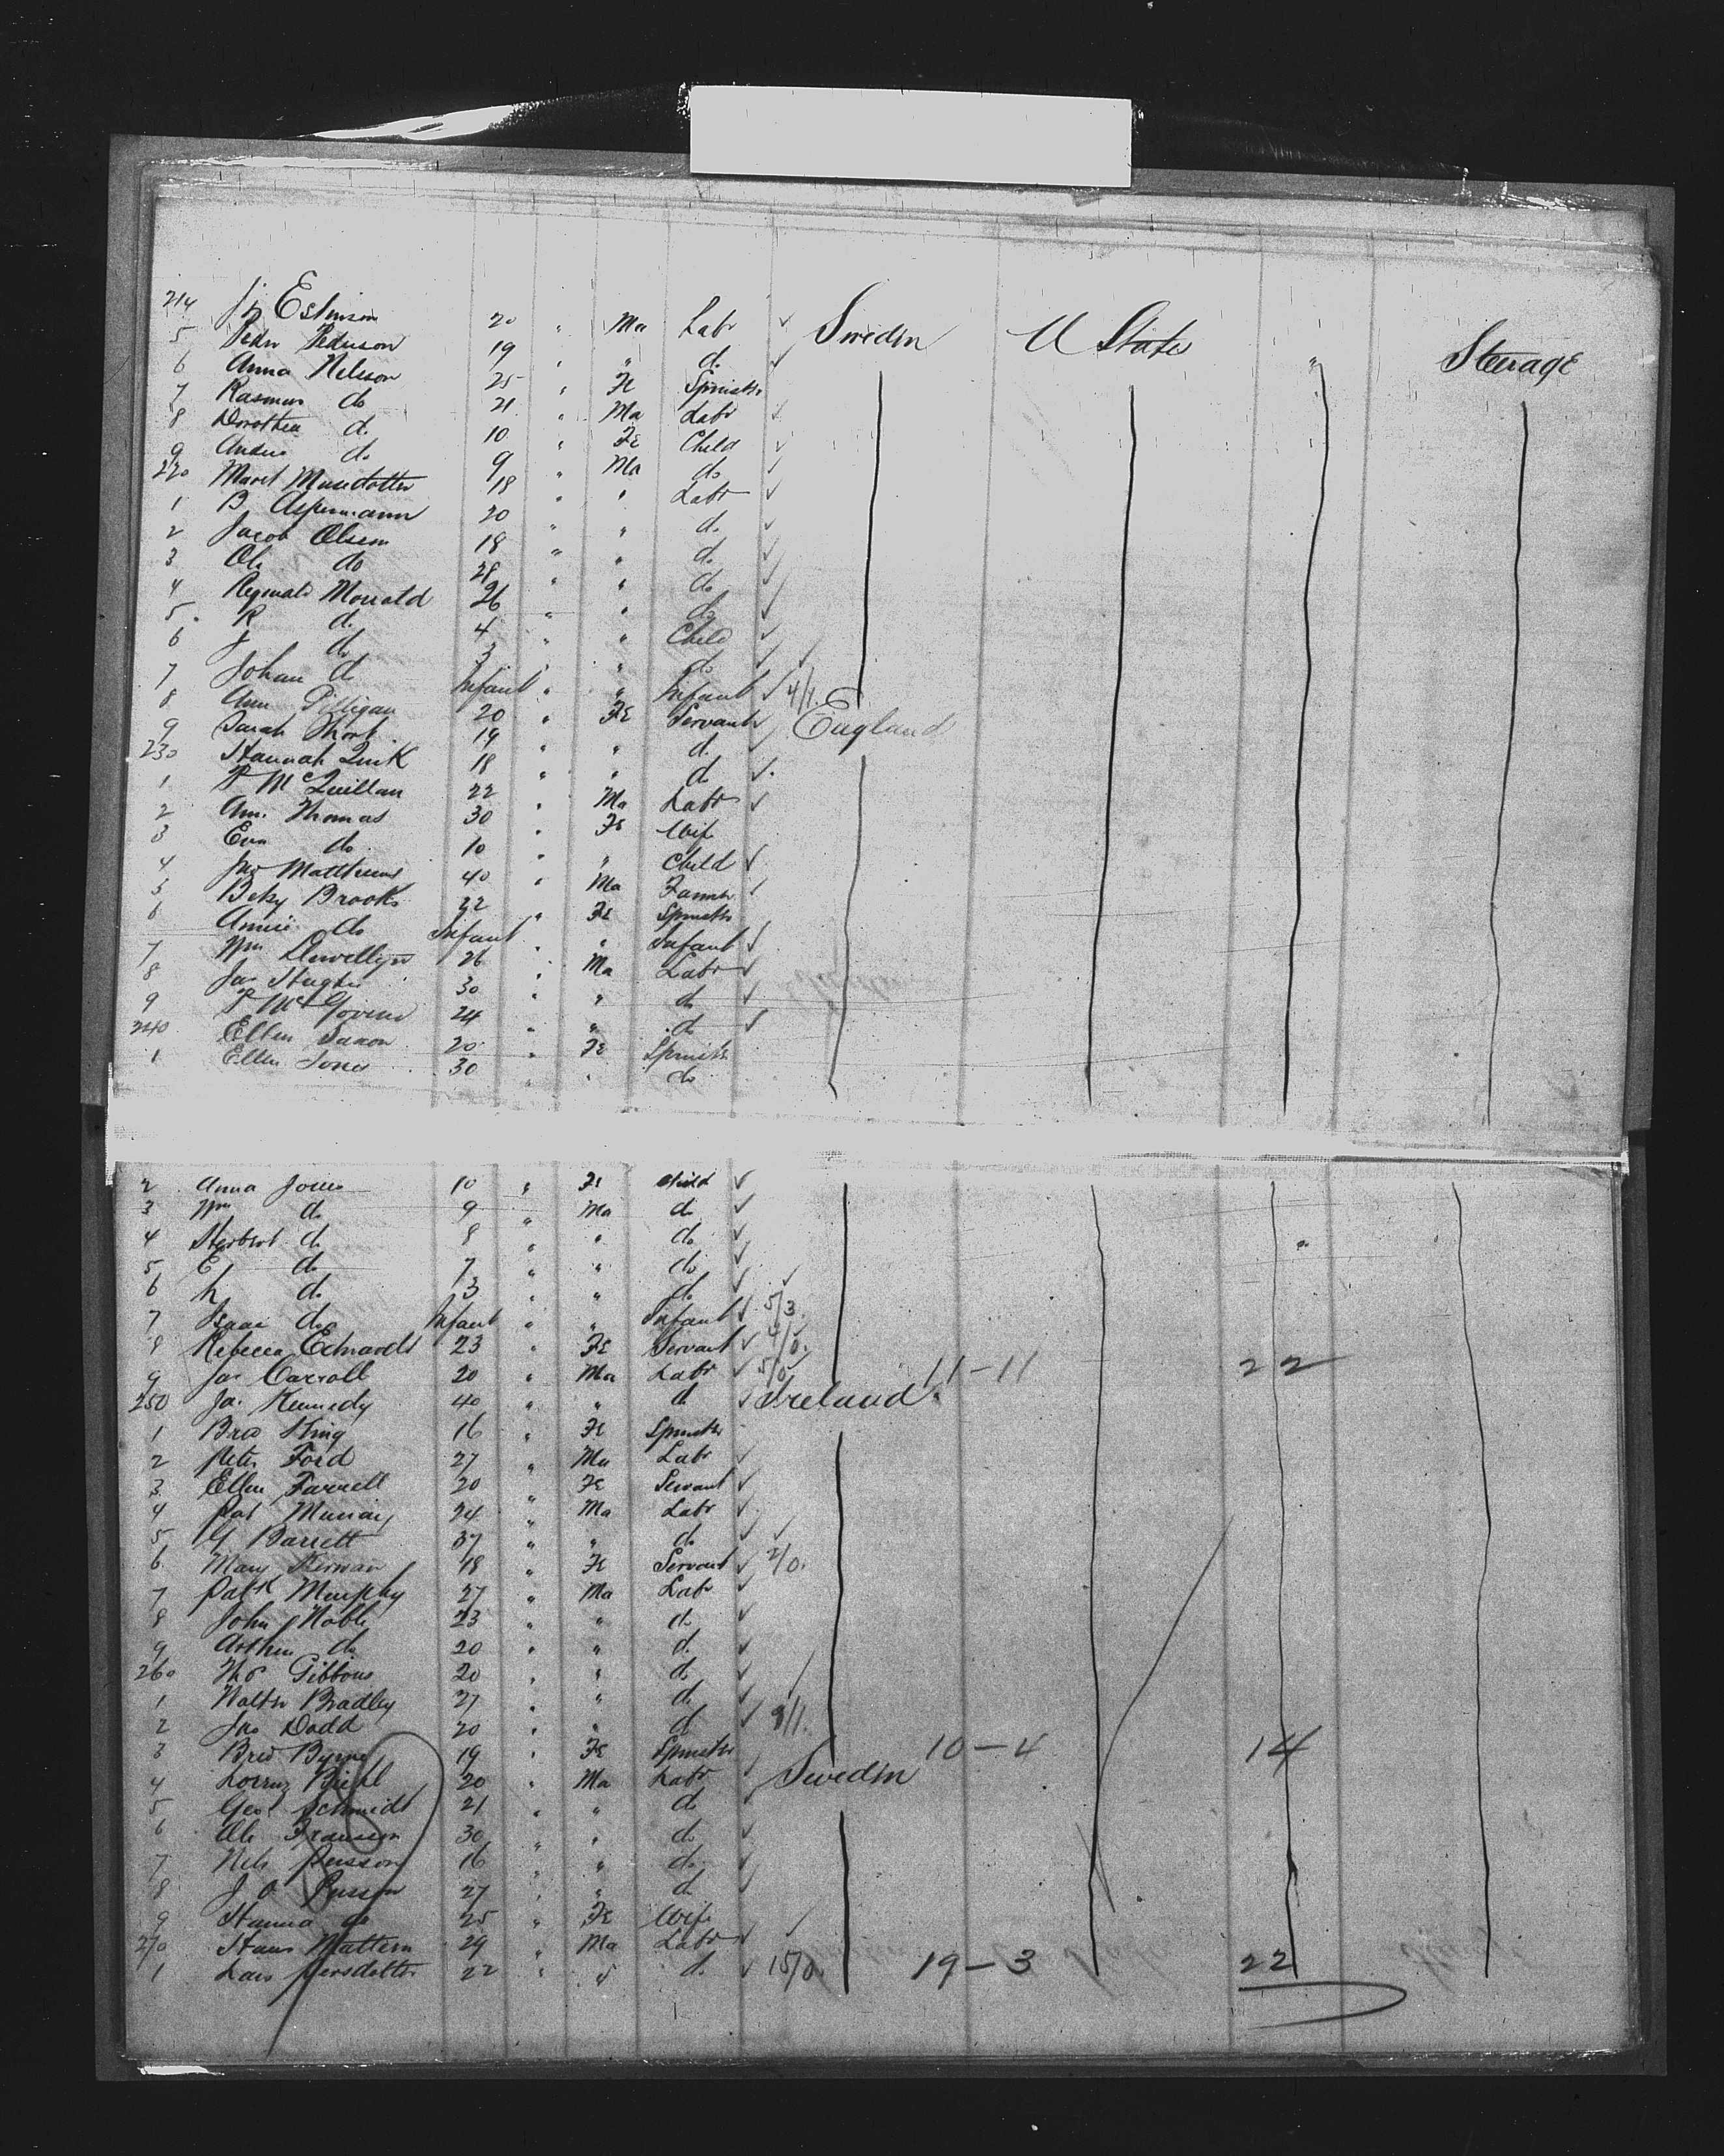 214 Jn Estinson 20 " Ma Labr ✓ Sweden U States " Steerage
5 Peder Pederson 19 " " do ✓
6 Anna Nelson 25 " Fe Spinster
7 Rasmus do 21 " Ma Labr ✓
8 Dorothea do 10 " Fe Child ✓
9 Anders do 9 " Ma do ✓
220 Maret 18 " " Labr ✓
1 B Aspermann 20 " " do ✓
2 Jacob Olsen 18 " " do ✓
3 Ole do 28 " " do ✓
4 Reginald Morrald 26 " " do ✓
5 R do 4 " " Child ✓
6 J do 3 " " do ✓ ✓
7 Johan do Infant " " Infant ✓ 4/1.
8 Ann Pilligan 20 " Fe Servant ✓ England
9 Sarah Short 19 " " do ✓
230 Hannah Quirk 18 " " do ✓
1 P McQuillan 22 " Ma Labr ✓
2 Am. Thomas 30 " Fe Wife
3 Eva do 10 " " Child ✓
4 Jno Matthews 40 " Ma Farmer ✓
5 Betsy Brooks 22 " Fe Spinster
6 Annie do Infant " " Infant ✓
7 Wm Llewellyn 26 " Ma Labr ✓
8 Jas Hughes 30 " " do ✓
9 P McGovern 24 " " do ✓
240 Ellen Saxon 20 " Fe Spinster
1 Ellen Jones 30 " " do
2 Anna Jones 10 " Fe Child ✓
3 Wm do 9 " Ma do ✓
4 Herbert do 8 " " do ✓
5 E do 7 " " do ✓
6 h do 3 " " do ✓ ✓
7 Isaac do Infant " " Infant ✓ 5/3.
8 Rebecca Edwards 23 " Fe Servant ✓ 4/0.
9 Jas Carroll 20 " Ma Labr ✓ 5/0 11-11 22
250 Jas Kennedy 40 " " do ✓ Ireland
1 Brid King 16 " Fe Spinster
2 Peter Ford 27 " Ma Labr ✓
3 Ellen Farrell 20 " Fe Servant ✓
4 Pat Murray 24 " Ma Labr ✓
5 Barrett 37 " " do ✓ ✓
6 Mary Kirwan 18 " Fe Servant ✓ 2/0.
7 Patk Murphy 27 " Ma Labr ✓
8 John Noble 23 " " do ✓
9 Arthur do 20 " " do ✓
260 Ths Gibbons 20 " " do ✓
1 Walter Bradley 27 " " do ✓
2 Jno Dodd 20 " " do ✓ 8/1.
3 Brid Byrne 19 " Fe Spinster ✓ 10-4 14
4 Lorenz Biehl 20 " Ma Labr ✓ Sweden
5 Geo Schmidt 21 " " do ✓
6 Ole Fransson 30 " " do ✓
7 Nels Persson 16 " " do ✓
8 J O Persson 27 " " do ✓
9 Hanna do 25 " Fe Wife
270 Hans Mattson 29 " Ma Labr ✓
1 Lars Persdotter 22 " " do ✓ 15/0. 19-3 22